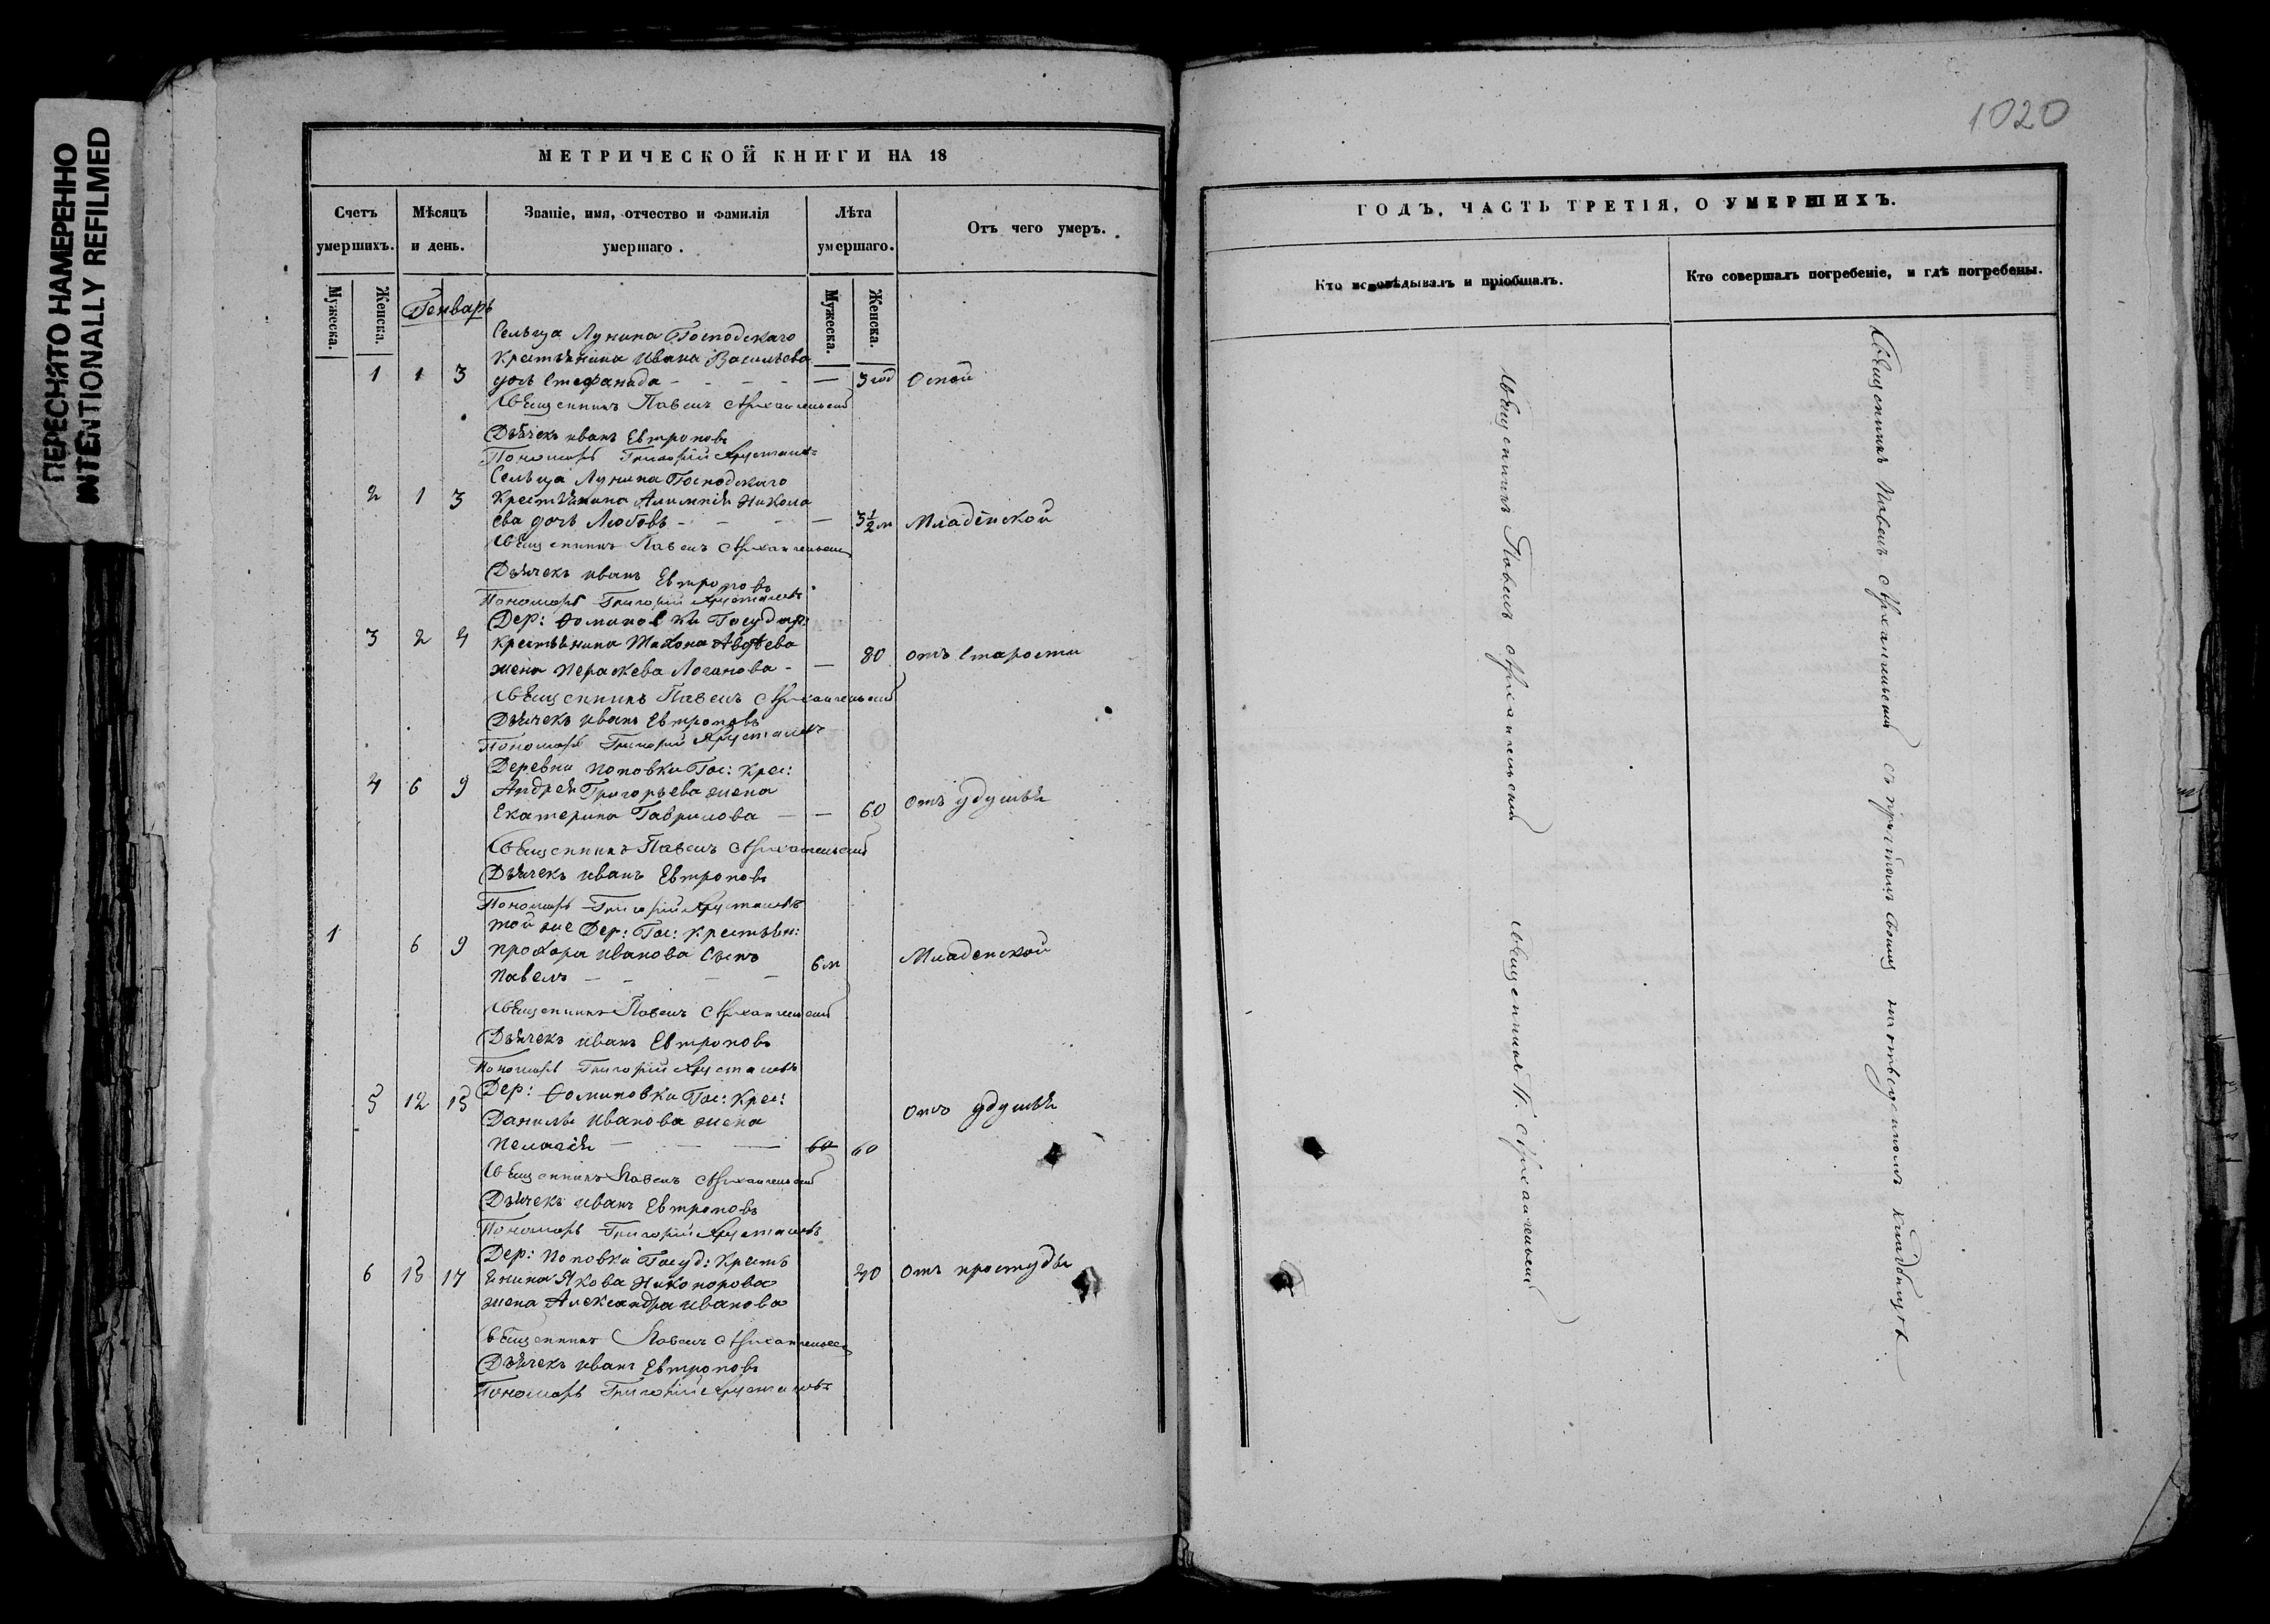 ПЕРЕСНЯТО НАМЕРЕННО
INTENTIONALLY REFILMED
МЕТРИЧЕСКОЙ КНИГИ НА 18
Счетъ умершихъ.
Мѣсяцъ и день.
Званіе, имя, отчество и фамилія умершаго.
Лѣта умершаго.
Отъ чего умеръ.
Мужеска.
Женска.
Генварь
Мужеска.
Женска.
Сельца Лунина Господскаго
крестьянина Ивана Васильева
1 1 3 дочь Стефанида - - - - — 3 год Оспой
Священникъ Павелъ Архангельский
Дьячекъ Иванъ Евтроповъ
Пономарь Григорій Хрусталевъ
Сельца Лунина Господскаго
2 1 3 крестьянина Алимпія Никола
ева дочь Любовь - - - — 3½ м Младенской
Священникъ Павелъ Архангельский
Дьячекъ Иванъ Евтроповъ
Пономарь Григорій Хрусталевъ
Дер: Ѳоминовки Государ:
3 2 4 крестьянина Тихона Авдѣева
жена Перасковья Логанова - — 80 отъ Старости
Священникъ Павелъ Архангельский
Дьячекъ Иванъ Евтроповъ
Пономарь Григорій Хрусталевъ
Деревни Поповки Гос: крес:
4 6 9 Андрея Григорьева жена
Екатерина Гаврилова — — 60 отъ удушья
Священникъ Павелъ Архангельский
Дьячекъ Иванъ Евтроповъ
Пономарь Григорій Хрусталевъ
той же Дер: Гос: крестьян:
1 6 9 Прохора Иванова Сынъ
Павелъ — - — - 6 м Младенской
Священникъ Павелъ Архангельский
Дьячекъ Иванъ Евтроповъ
Пономарь Григорій Хрусталевъ
5 12 15 Дер: Ѳоминовки Гос: крес:
Данилы Иванова жена отъ удушья
Пелагія — — — 60 60
Священникъ Павелъ Архангельский
Дьячекъ Иванъ Евтроповъ
Пономарь Григорій Хрусталевъ
Дер: Поповки Госуд: кресть
6 15 17 янина Якова Никонорова 40 отъ простуды
жена Александра Иванова
Священникъ Павелъ Архангельский
Дьячекъ Иванъ Евтроповъ
Пономарь Григорій Хрусталевъ
1020
ГОДЪ, ЧАСТЬ ТРЕТІЯ, О УМЕРШИХЪ.
Кто исповѣдывалъ и пріобщалъ.
Кто совершалъ погребеніе, и гдѣ погребены.
Священникъ Павелъ Архангельский Священникъ П. Архангельский
Священникъ Павелъ Архангельский съ причтомъ на отведенномъ кладбищѣ